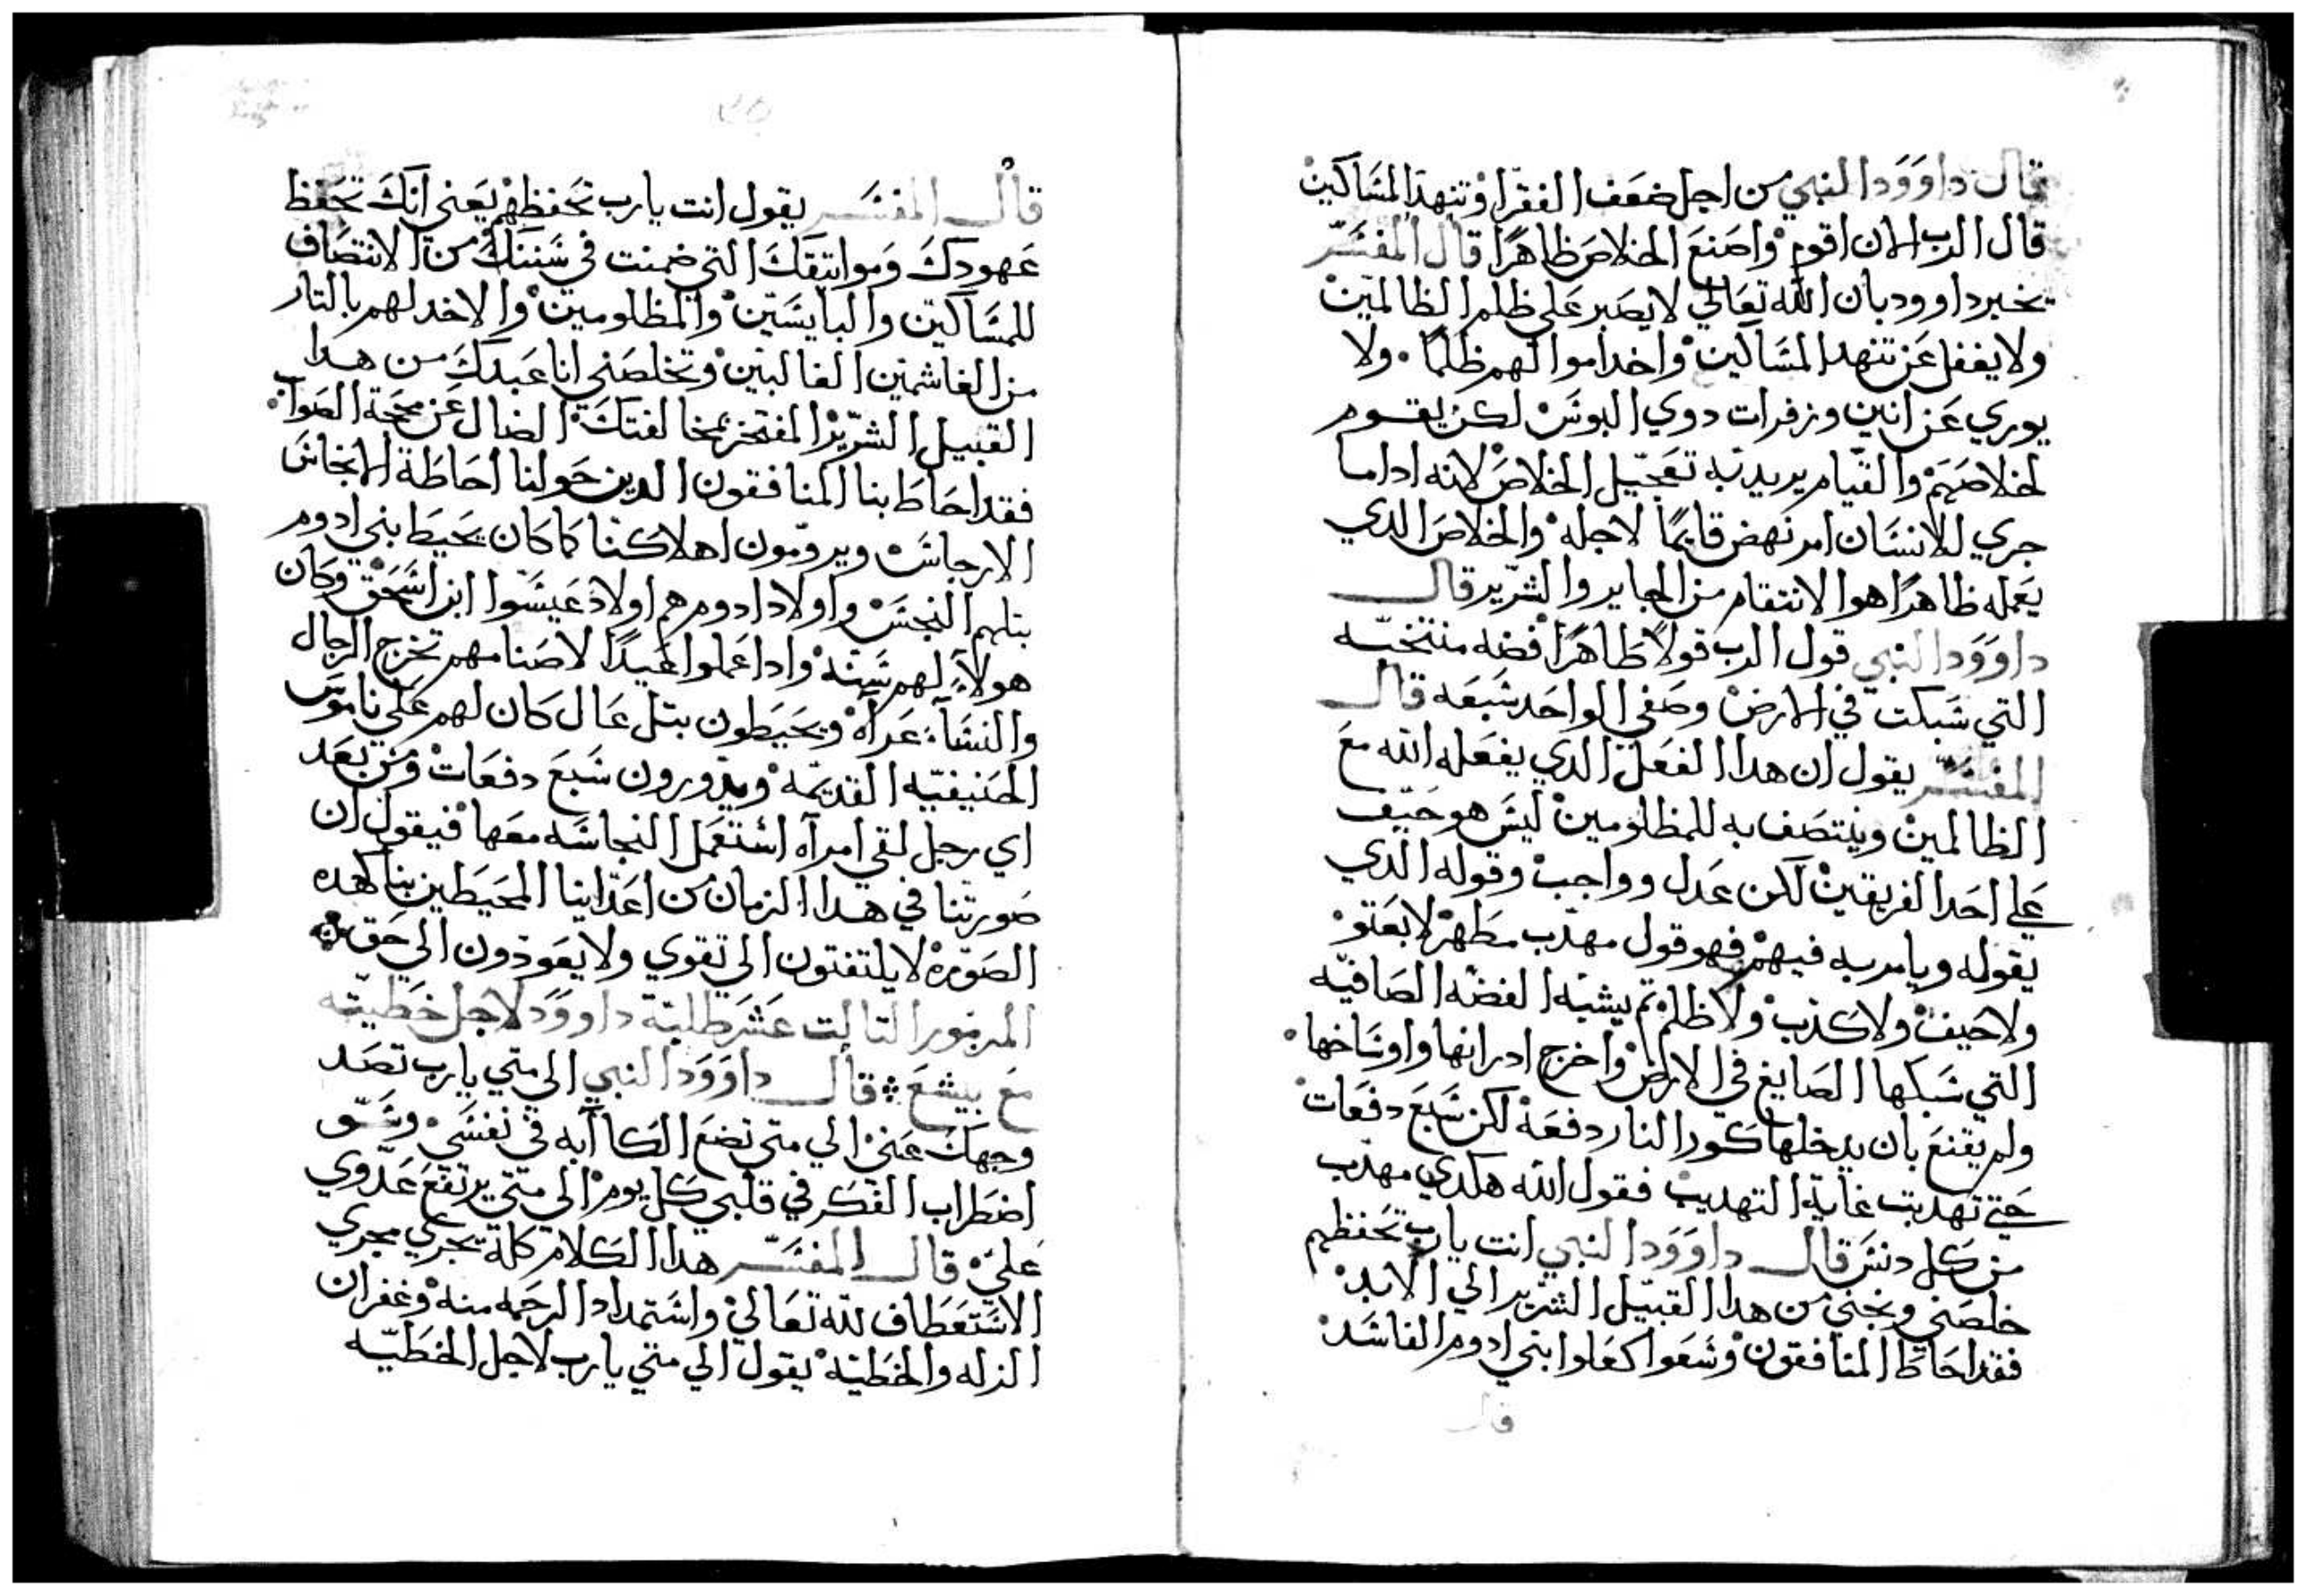 قال داوود النبي من اجل ضعف الفقرا وتنهد المساكين
قال الرب الان اقوم واصنع الخلاص ظاهرًا قال المفسر
يخبر داوود بان الله تعالي لا يصبر علي ظلم الظالمين
ولا يغفل عن تنهد المساكين واخد اموالهم ظلمًا ٠ ولا
يوري عن انين وزفرات دوي البوس لكن يقوم
لخلاصهم والقيام يريد به تعجيل الخلاص لانه اداما
جري للانسان امر نهض قايمًا لاجله والخلاص الدي
يعمله ظاهرًا هوا لانتقام من الجاير والشرير قال
داوود النبي قول الرب قولاً طاهرًا فضه منتخبه
التي سبكت في الارض وصفي الواحد سبعه قال
المفسر يقول ان هدا الفعل الدي يفعله الله مع
الظالمين وينتصف به للمظلومين ليس هو حيف
علي احد الفريقين لكن عدل وواجب وقوله الدي
يقوله ويامر به فيهم فهو قول مهدب مطهر لا بعتو
ولا حيف ولا كذب ولا ظلم تم يشبه الفضه الصافيه
التي سبكها الصايغ في الارض واخرج ادرانها واوساخها ٠
ولم يقنع بان يدخلها كور النار دفعة لكن سبع دفعات
حتي تهدبت غاية التهديب فقول الله هكدي مهدب
من كل دنس قال داوود النبي انت يارب تحفظهم
خلصني ونجني من هدا القبيل الشرير الي الابد
فقد احاط المنافقون وسعوا كعلوا بني ادوم الفاسد
قال
قال المفسر يقول انت يارب تحفظهم يعني انك تحفظ
عهودك ومواتيقك التي ضمنت في سننك من الانتصاف
للمساكين والبايسين والمظلومين والاخد لهم بالتار
من الغاشمين الغالبين وتخلصني انا عبدك من هدا
القبيل الشرير المفتخر بمخالفتك الضال عن محجة الصواب ٠
فقد احاط بنا المنافقون الدين حولنا احاطة الانجاس
الارجاس ويرومون اهلاكنا كما كان يحيط بني ادوم
بتلهم النجس واولاد ادوم هم اولاد عيسوا ابن اسحق وكان
هولاء لهم سنة وادا عملوا عيدًا لاصنامهم تخرج الرجال
والنساء عراه ويحيطون بتل عال كان لهم علي ناموس
الحنيفيه القديمه ويدورون سبع دفعات ومن بعد
اي رجل لقي امرآه استعمل النجاسه معها فيقول ان
صورتنا في هدا الزمان من اعداينا المحيطين بنا كهده
الصوره لا يلتفتون الي تقوي ولا يعودون الي حق
المزمور التالت عشر طلبة داوود لاجل خطيته
مع بيشع ܀ قال داوود النبي الي متي يارب تصد
وجهك عني الي متي تضع الكاآبه في نفسي وسو
اضطراب الفكر في قلبي كل يوم الي متي يرتفع عدوي
علي قال المفسر هدا الكلام كله يجري مجري
الاستعطاف لله تعالي واستمداد الرحمه منه وغفران
الزله والخطيه يقول الي متي يارب لاجل الخطيه